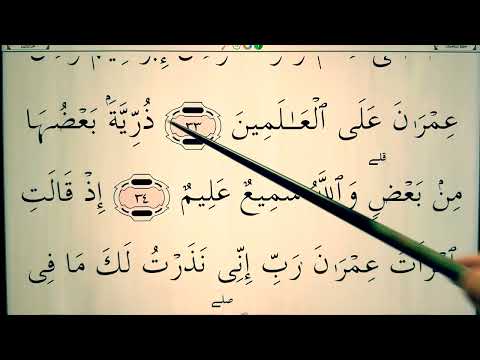 عِمْرَٰنَ عَلَى ٱلْعَـٰلَمِينَ ٣٣ ذُرِّيَّةَۢ بَعْضُهَا
مِنۢ بَعْضٍ ۗ وَٱللَّهُ سَمِيعٌ عَلِيمٌ ٣٤ إِذْ قَالَتِ
ٱمْرَأَتُ عِمْرَٰنَ رَبِّ إِنِّى نَذَرْتُ لَكَ مَا فِى